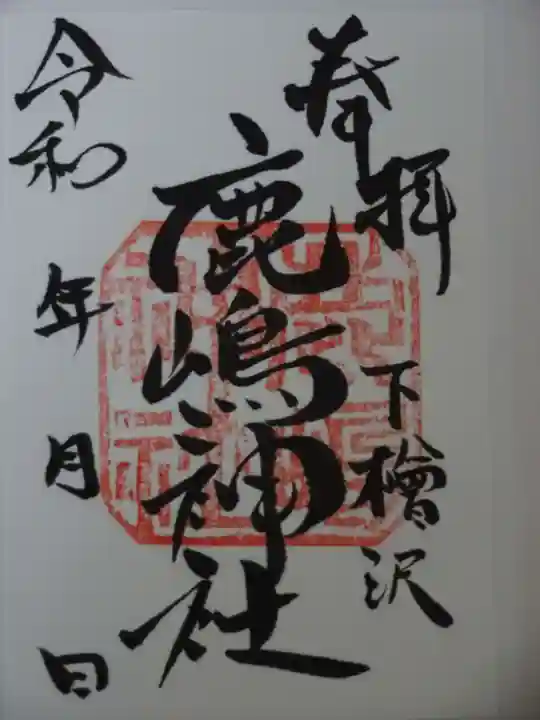 奉拝
下檜沢
鹿嶋神社
令和 年 月 日